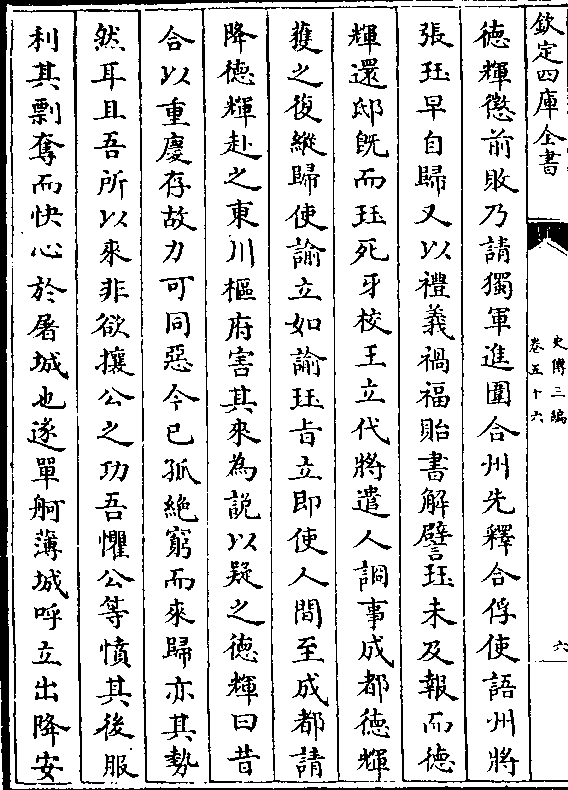 欽定四庫全書
史傳三編
卷五十六
六
德輝懲前敗乃請獨軍進圍合州先釋合俘使語州將
張珏早自歸又以禮義禍福貽書解譬珏未及報而德
輝還邸既而珏死牙校王立代將遣人詗事成都德輝
獲之復縱歸使諭立如諭珏㫖立即使人間至成都請
降德輝赴之東川樞府害其來為説以疑之德輝曰昔
合以重慶存故力可同惡今已孤絶窮而來歸亦其勢
然耳且吾所以來非欲攘公之功吾懼公等憤其後服
利其剽奪而快心於屠城也遂單舸薄城呼立出降安